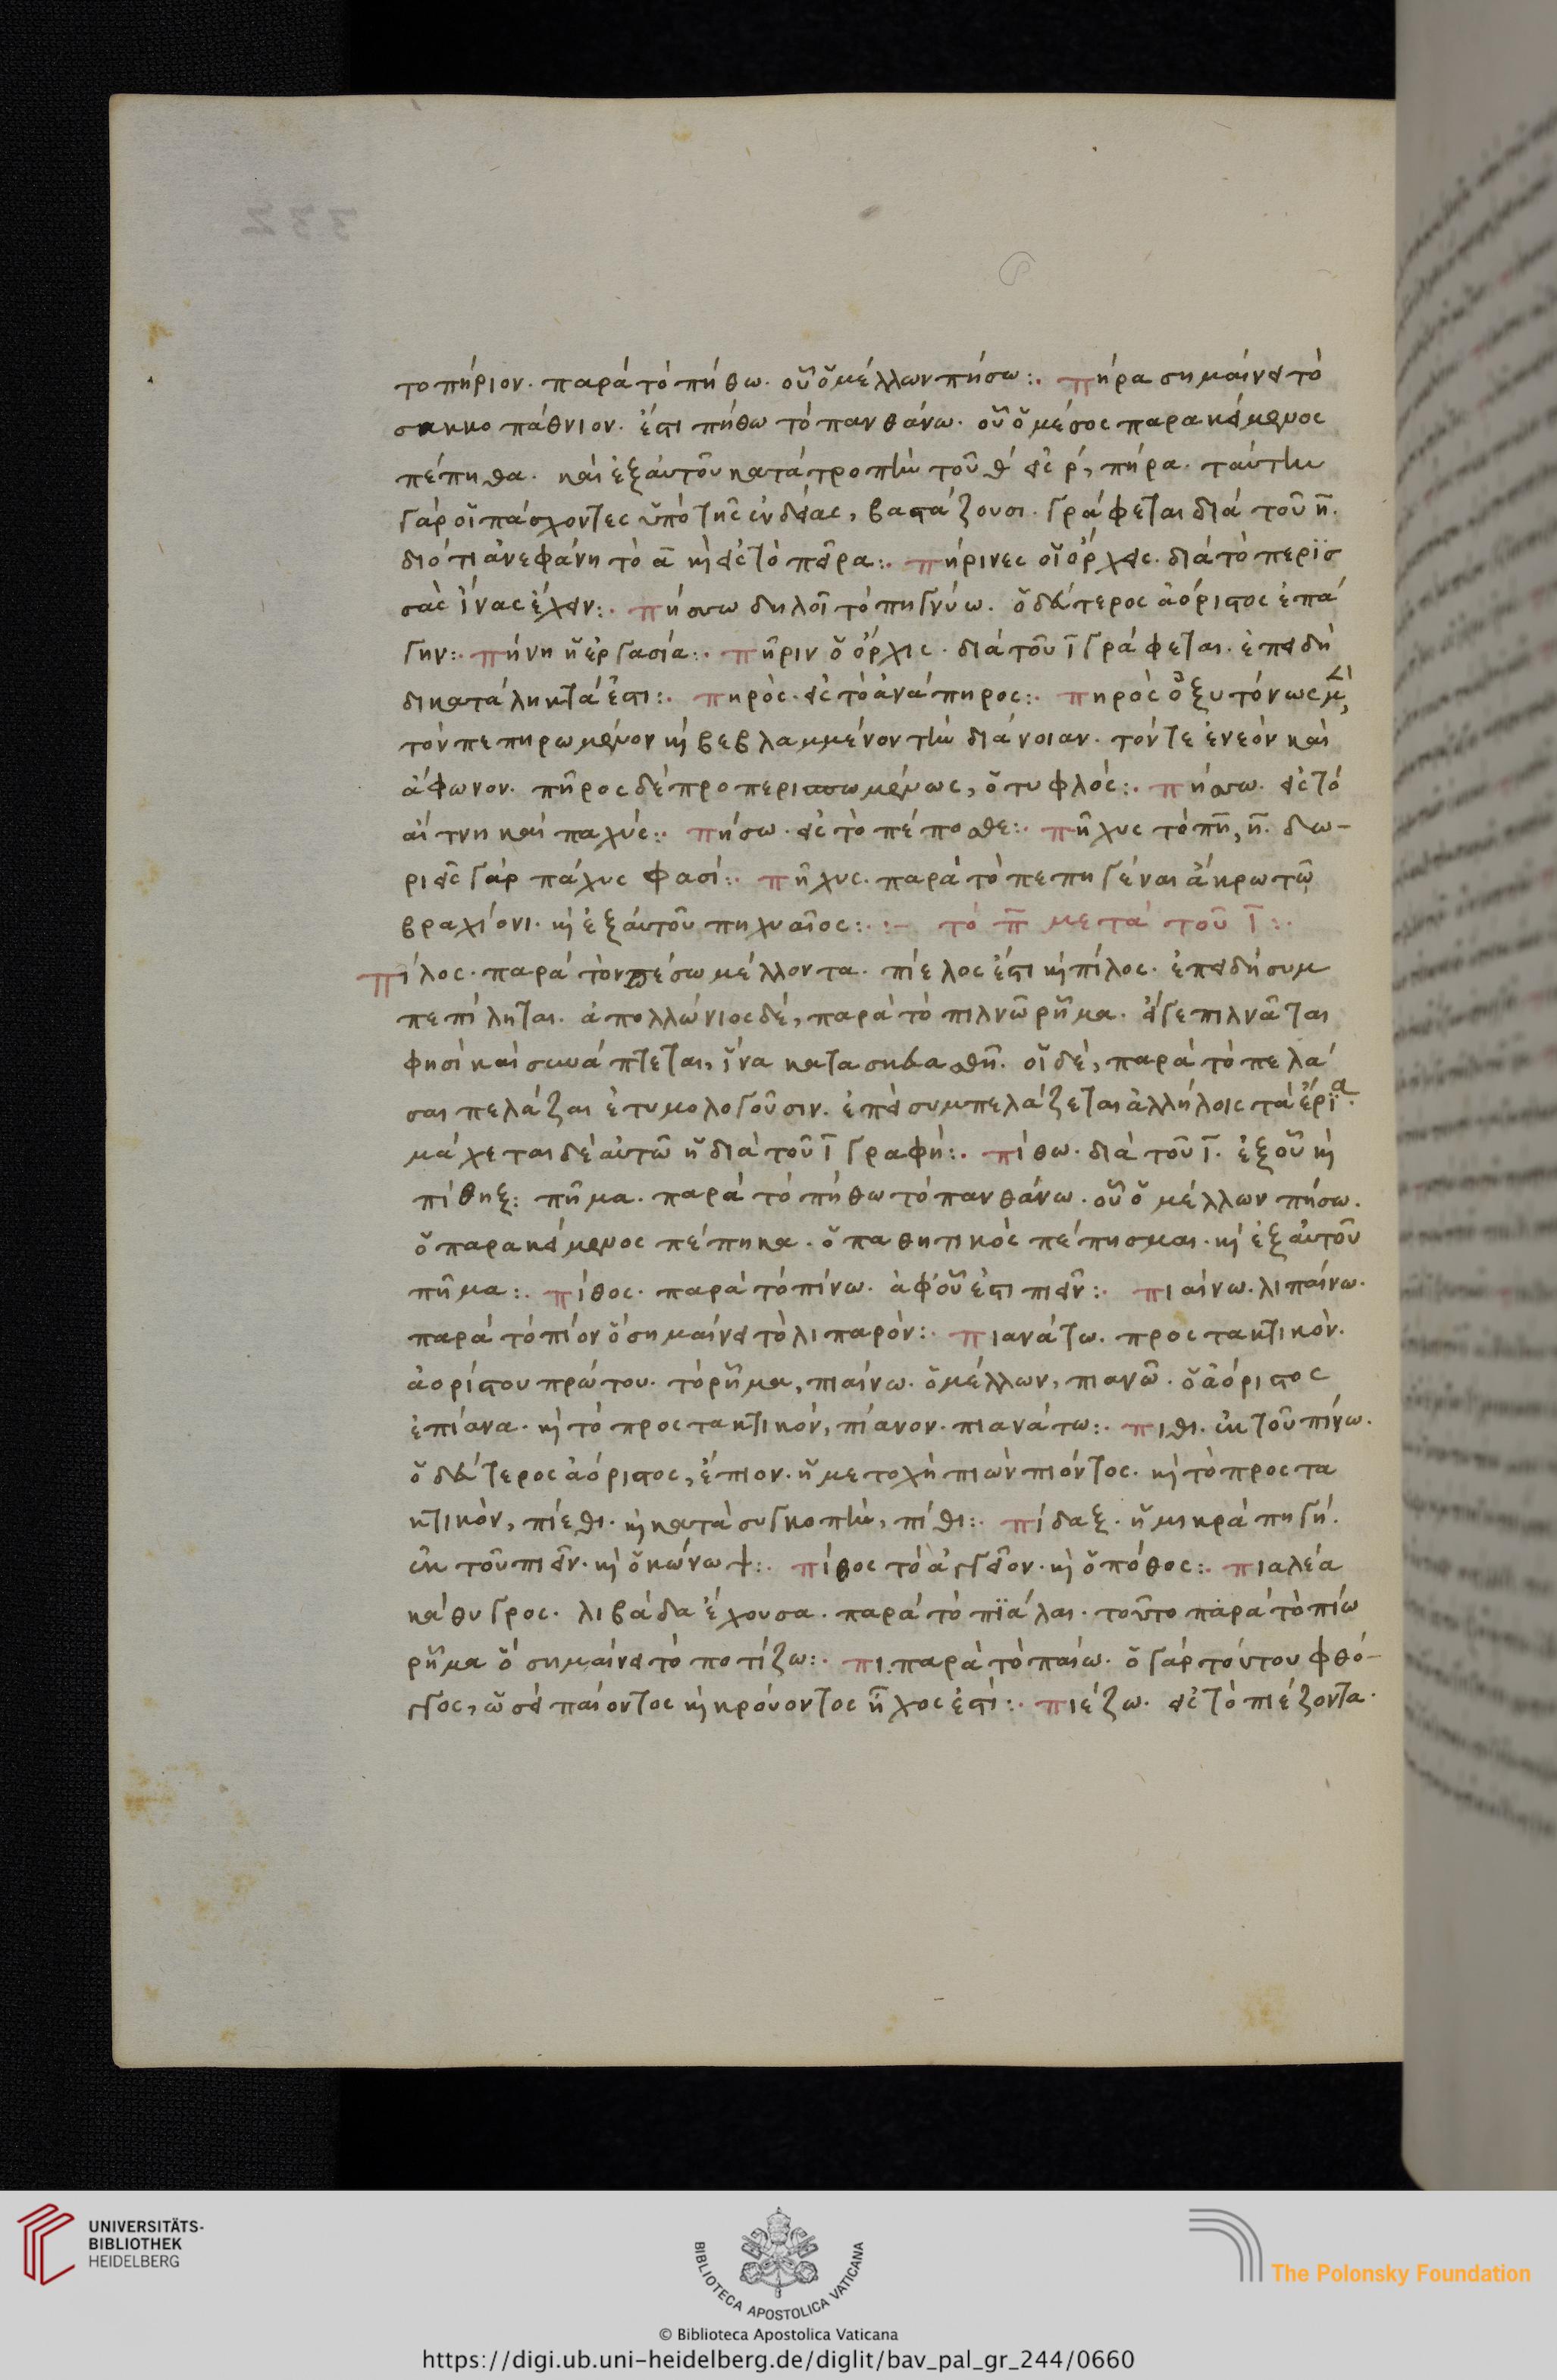 το πήριον. παρὰ τὸ πήθω. οὗ ὁ μέλλων πήσω:. πήρα σημαίνει τὸ
σακκοπάθνιον. ἔστι πήθω τὸ πανθάνω. οὗ ὁ μέσος παρακείμενος
πέπηθα. καὶ ἐξ αὐτοῦ κατὰ τροπὴν τοῦ θ εἰς ρ, πήρα. ταύτην
γὰρ οἱ πάσχοντες ὑπὸ τῆς ἐνδείας, βαστάζουσι. γράφεται διὰ τοῦ η.
διότι ἀνεφάνη τὸ α κὶ εἰς τὸ πεῖρα:. πήρινες οἱ ὄρχεις. διὰ τὸ περισ
σὰς ἵνας ἔχειν:. πήσσω δηλοῖ τὸ πηγνύω. ὁ δεύτερος ἀόριστος ἐπά
γην:. πήνη ἡ ἐργασία:. πῆριν ὁ ὄρχις. διὰ τοῦ ι γράφεται. ἐπειδὴ
δικατάληκτά ἐστι:. πηρὸς. εἰς τὸ ἀνάπηρος:. πηρὸς ὀξυτόνως
τὸν πεπηρωμένον κὶ βεβλαμμένον τὴν διάνοιαν. τόν τε ἐνεὸν καὶ
ἄφωνον. πῆρος δὲ προπερισπωμένως, ὁ τυφλός:. πήσσω. εἰς τὸ
αἴτνη καὶ παχύς:. πήσω. εἰς τὸ πέποσθε:. πῆχυς τὸ πη, η. δω-
ριεῖς γὰρ πάχυς φασί:. πῆχυς. παρὰ τὸ πεπηγέναι ἄκρω τῶ
βραχίονι. κὶ ἐξ αὐτοῦ πηχυαῖος:. :- τὸ π μετὰ τοῦ ι:.
πίλος. παρὰ τὸν πέσω μέλλοντα. πίελος ἔστι κὶ πίλος. ἐπειδὴ συμ
πεπίληται. ἀπολλώνιος δέ, παρὰ τὸ πιλνῶ ῥῆμα. εἴγε πιλνᾶται
φησὶ καὶ συνάπτεται, ἵνα κατασκευασθῆ. οἱ δὲ, παρὰ τὸ πελά
σαι πελάζαι ἐτυμολογοῦσιν. ἐπεὶ συμπελάζεται ἀλλήλοις τὰ ἔρια.
μάχεται δὲ αὐτῶ ἡ διὰ τοῦ ι γραφή:. πίθω. διὰ τοῦ ι. ἐξ οὗ κὶ
πίθηξ: πῆμα. παρὰ τὸ πήθω τὸ πανθάνω. οὗ ὁ μέλλων πήσω.
ὁ παρακείμενος πέπηκα. ὁ παθητικὸς πέπησμαι. κὶ ἐξ αὐτοῦ
πῆμα:. πίθος. παρὰ τὸ πίνω. ἀφ' οὗ ἐστι πιεῖν:. πιαίνω. λιπαίνω.
παρὰ τὸ πίον ὃ σημαίνει τὸ λιπαρὸν:. πιανάτω. προστακτικὸν.
ἀορίστου πρώτου. τὸ ῥῆμα, πιαίνω. ὁ μέλλων, πιανῶ. ὁ ἀόριστος
ἐπίανα. κὶ τὸ προστακτικόν, πίανον. πιανάτω:. πιθι. ἐκ τοῦ πίνω.
ὁ δεύτερος ἀόριστος, ἔπιον. ἡ μετοχὴ πιὼν πιόντος. κὶ τὸ προστα
κτικὸν, πίεθι. κὶ κατὰ συγκοπὴν, πίθι:. πίδαξ. ἡ μικρὰ πηγή.
ἐκ τοῦ πιεῖν. κὶ ὁ κώνωψ:. πίθος τὸ ἀγγεῖον. κὶ ὁ πόθος:. πιαλέα
κάθυγρος. λιβάδα ἔχουσα. παρὰ τὸ πιάλαι. τοῦτο παρὰ τὸ πίω
ῥῆμα ὃ σημαίνει τὸ ποτίζω:. πι. παρὰ τὸ παίω. ὁ γὰρ τούτου φθό-
γγος, ὡσεὶ παίοντος κὶ κρούοντος ἦχος ἐστί:. πιέζω. εἰς τὸ πιέζοντα.
UNIVERSITÄTS-
BIBLIOTHEK
HEIDELBERG
BIBLIOTECA APOSTOLICA VATICANA
The Polonsky Foundation
© Biblioteca Apostolica Vaticana
https://digi.ub.uni-heidelberg.de/diglit/bav_pal_gr_244/0660